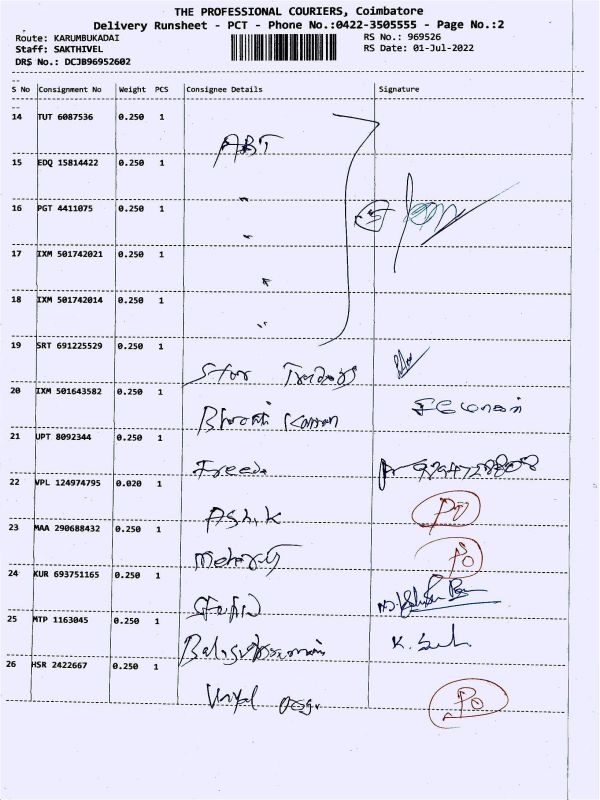 THE PROFESSIONAL COURIERS, Coimbatore
Delivery Runsheet - PCT - Phone No.:0422-3505555 - Page No.:2
Route: KARUMBUKADAI RS No.: 969526
Staff: SAKTHIVEL RS Date: 01-Jul-2022
DRS No.: DCJB96952602
S No Consignment No Weight PCS Consignee Details Signature
14 TUT 6087536 0.250 1
ABT
15 EDQ 15814422 0.250 1
16 PGT 4411075 0.250 1
17 IXM 501742021 0.250 1
18 IXM 501742014 0.250 1
19 SRT 691225529 0.250 1
Star Traders
20 IXM 501643582 0.250 1
Bharati Kannan
21 UPT 8092344 0.250 1
Freeda
22 VPL 124974795 0.020 1
Ashik PO
23 MAA 290688432 0.250 1
PO
24 KUR 693751165 0.250 1
25 MTP 1163045 0.250 1
K.
26 HSR 2422667 0.250 1
PO